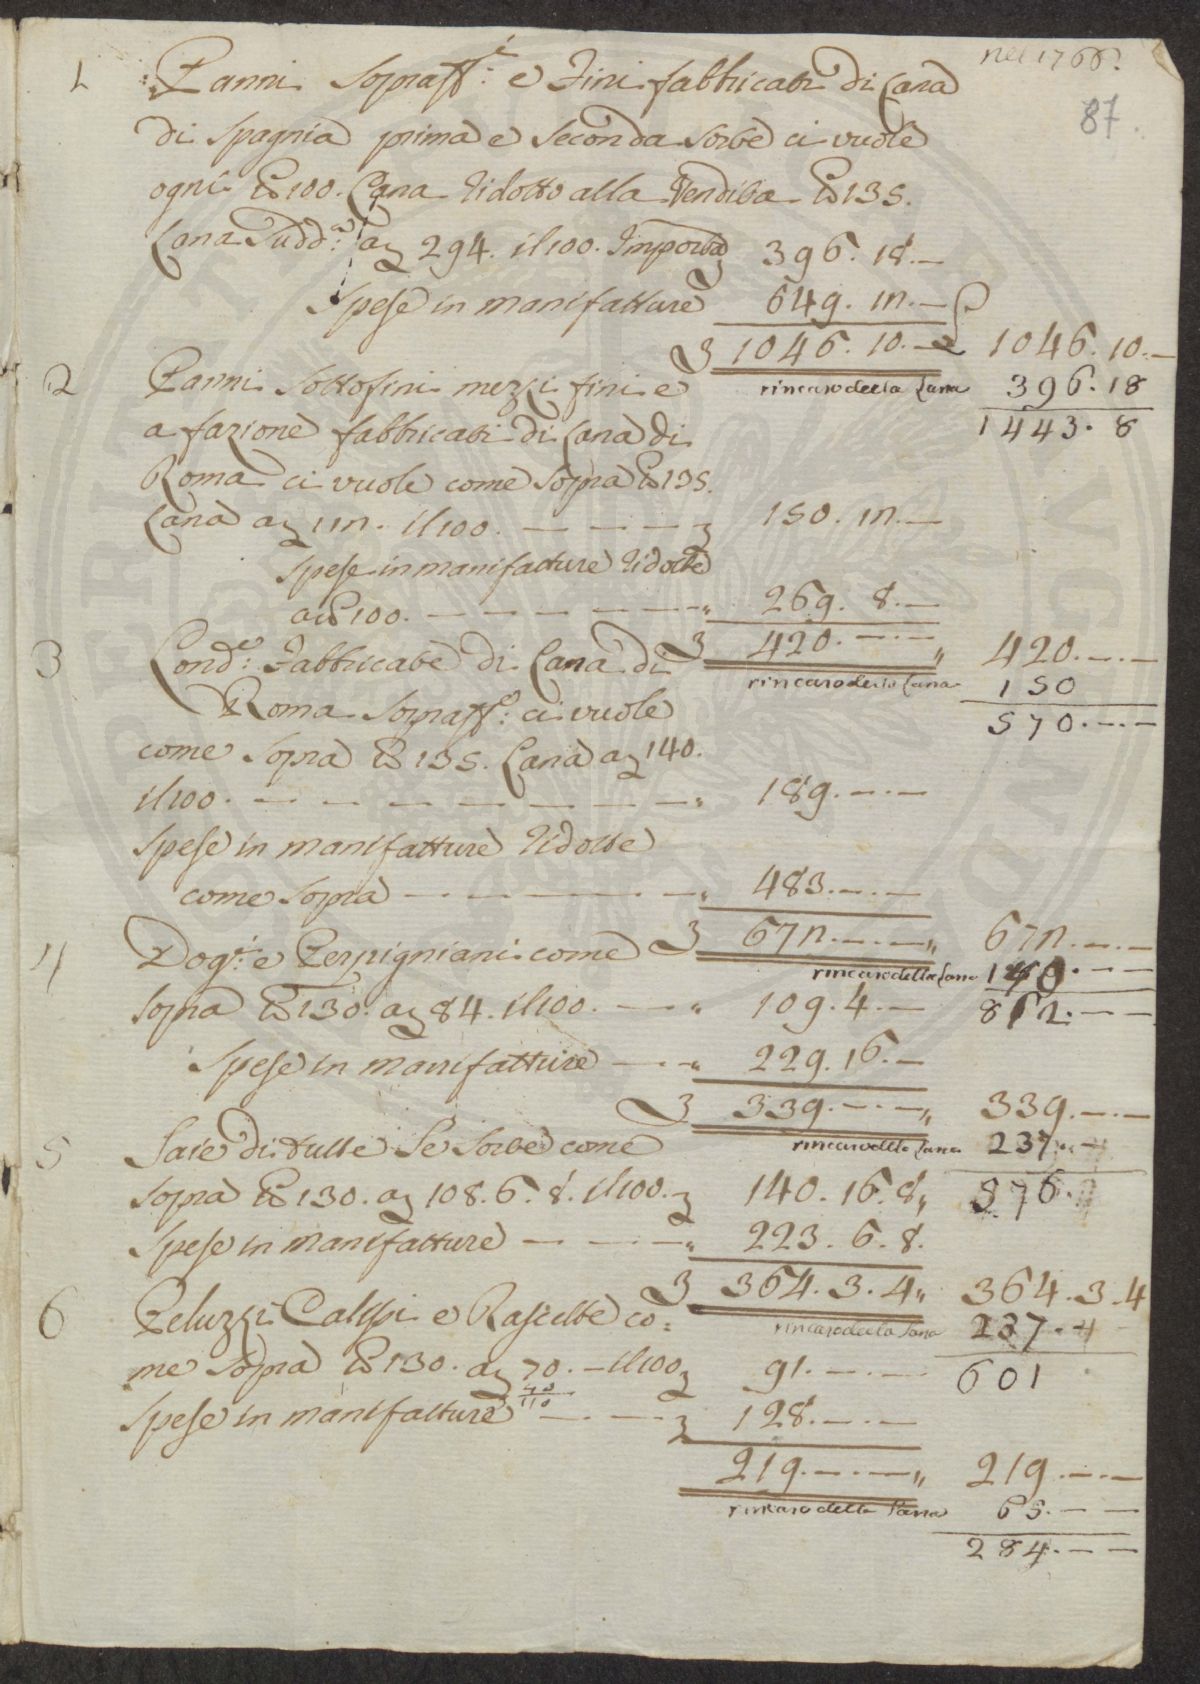 nel 1766.
87
1 Panni Sopraff:i e Fini fabbricati di Lana
di Spagnia prima e Seconda Sorte ci vuole
ogni lb 100. Lana ridotto alla Vendita lb 135.
Lana Sudd:a a 294. il 100. Importa 396. 18. —
Spese in manifatture 649. 12. —
1046. 10. — 1046. 10. —
rincaro della Lana 396. 18
1443. 8
2 Panni Sottofini mezzi fini e
a fazione fabbricati di Lana di
Roma ci vuole come Sopra lb 135.
Lana a 112. il 100. — — — — 150. 12. —
Spese in manifatture ridotte
a lb 100. — — — — — 269. 8. —
420. — — 420. — —
rincaro della Lana 150
570. — —
3 Cond:e Fabbricate di Lana di
Roma Sopraff:e ci vuole
come Sopra lb 135. Lana a 140.
il 100. — — — — — — — 189. — —
Spese in manifatture ridotte
come Sopra — — — — — 483. — —
672. — — 672. — —
rincaro della Lana 140. — —
812. — —
4 Dog:i e Perpigniani come
Sopra lb 130. a 84. il 100. — — 109. 4. —
Spese in manifatture — — 229. 16. —
339. — — 339. — —
rincaro della Lana 237. —
576.
5 Saie di tutte le Sorte come
Sopra lb 130. a 108. 6. 8. il 100. 140. 16. 8
Spese in manifatture — — — 223. 6. 8.
364. 3. 4 364. 3. 4
rincaro della Lana 237. 4
601
6 Peluzzi Calissi e Rascette co=
me Sopra lb 130. a 70. — il 100 91. — —
40
110
Spese in manifatture — — 128. — —
219. — — 219. — —
rincaro della Lana 65. — —
284. — —